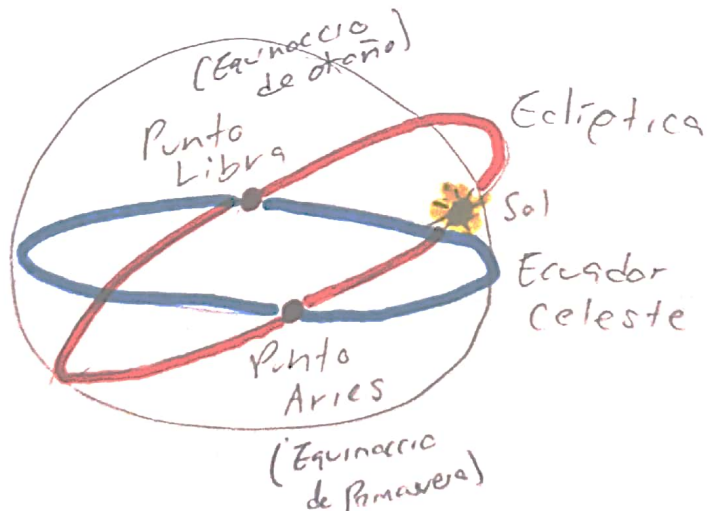 (Equinoccio
de otoño)
Punto
Libra
Eclíptica
Sol
Ecuador
Celeste
Punto
Aries
(Equinoccio
de Primavera)